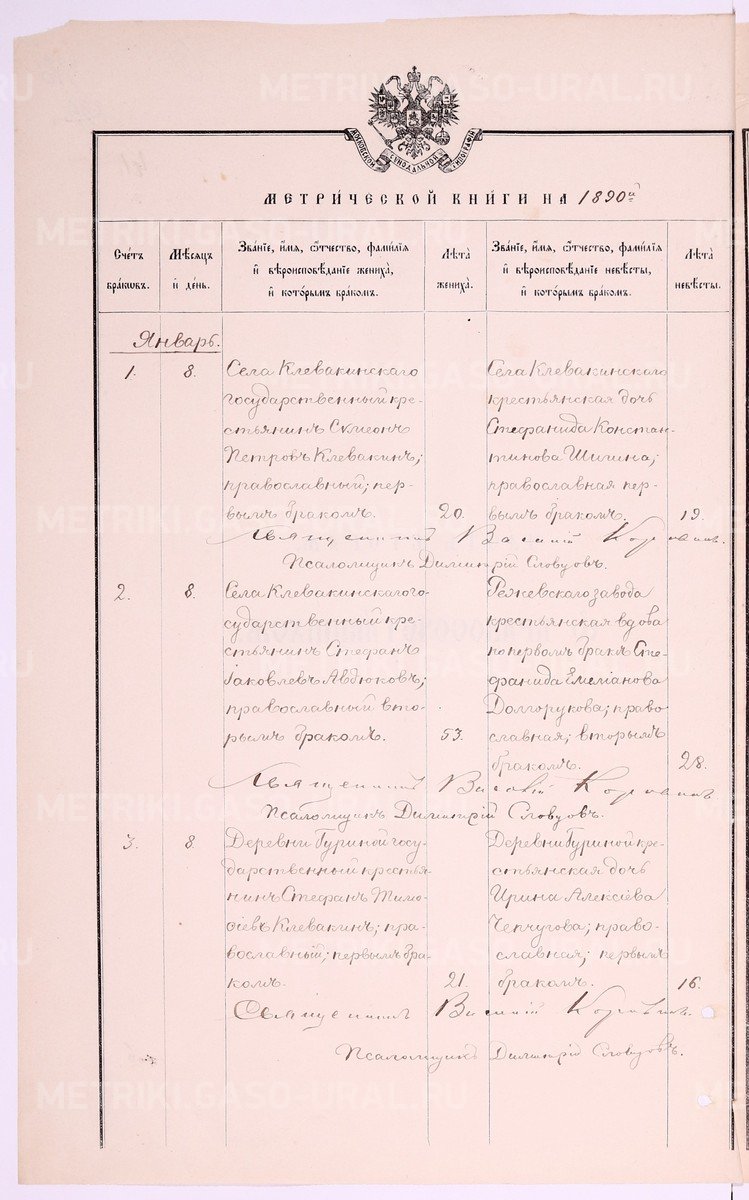 МОСКОВСКОЙ СѴНОДАЛЬНОЙ ТИПОГРАФІИ
МЕТРИ́ЧЕСКОЙ КНИ́ГИ НА 1890й
Сче́тъ бра́кѡвъ.
Мѣ́сѧцъ и҆ де́нь.
Зва́нїе, и҆́мѧ, ѻ҆́тчество, фами́лїѧ и҆ вѣроисповѣ́данїе жениха̀, и҆ кото́рымъ бра́комъ.
Лѣ́та жениха̀.
Зва́нїе, и҆́мѧ, ѻ҆́тчество, фами́лїѧ и҆ вѣроисповѣ́данїе невѣ́сты, и҆ кото́рымъ бра́комъ.
Лѣ́та невѣ́сты.
Январь.
1.
8.
Села Клевакинскаго
государственный кре-
стьянинъ Симеонъ
Петровъ Клевакинъ;
православный; пер-
вымъ бракомъ.
20.
Села Клевакинскаго
крестьянская дочь
Стефанида Констан-
тинова Шигина;
православная пер-
вымъ бракомъ.
19.
Священникъ Василій
Псаломщикъ Димитрій Словцовъ.
2.
8.
Села Клевакинскаго го-
сударственный кре-
стьянинъ Стефанъ
Іаковлевъ Авдюковъ;
православный вто-
рымъ бракомъ.
53.
Режевскаго завода
крестьянская вдова
по первомъ бракѣ Сте-
фанида Емеліанова
Долгорукова; право-
славная; вторымъ
бракомъ.
28.
Священникъ Василій
Псаломщикъ Димитрій Словцовъ.
3.
8.
Деревни Гуриной госу-
дарственный крестья-
нинъ Стефанъ Тимо-
ѳеевъ Клевакинъ; пра-
вославный; первымъ бра-
комъ.
21.
Деревни Гуриной кре-
стьянская дочь
Ирина Алексіева
Чепчугова; право-
славная; первымъ
бракомъ.
16.
Священникъ Василій
Псаломщикъ Димитрій Словцовъ.
METRIKI.GASO-URAL.RU